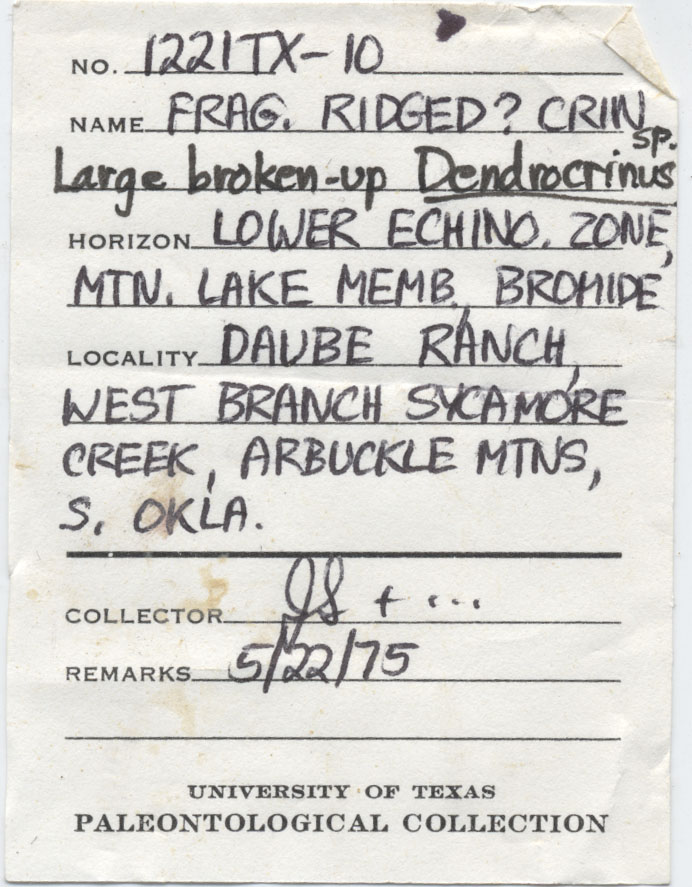 NO. 1221TX-10
NAME FRAG. RIDGED? CRIN
sp.
Large broken-up Dendrocrinus
HORIZON LOWER ECHINO. ZONE,
MTN. LAKE MEMB, BROMIDE
LOCALITY DAUBE RANCH,
WEST BRANCH SYCAMORE
CREEK, ARBUCKLE MTNS,
S. OKLA.
COLLECTOR JS + ...
REMARKS 5/22/75
UNIVERSITY OF TEXAS
PALEONTOLOGICAL COLLECTION